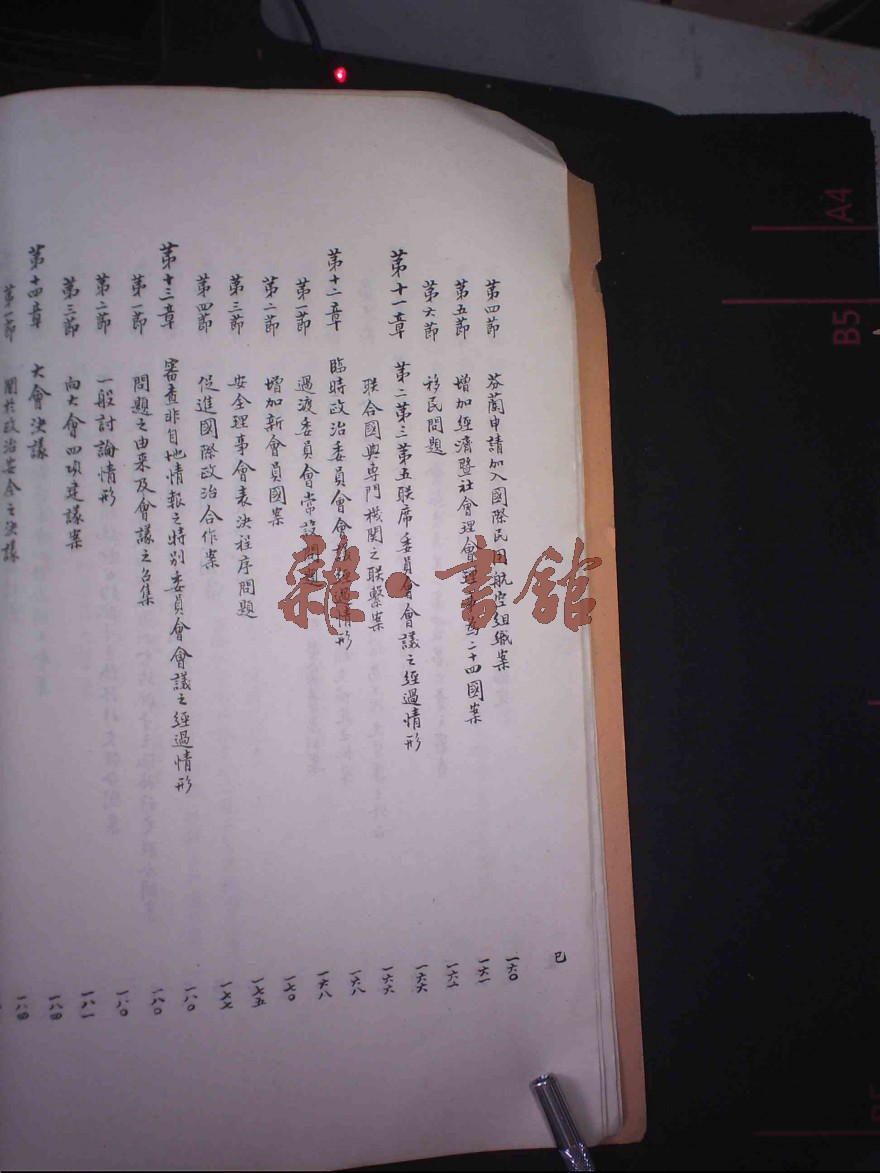 巳
第四節 芬蘭申請加入國際民用航空組織案 一六〇
第五節 增加經濟暨社會理會理事為二十四國案 一六一
第六節 移民問題 一六二
第十一章 第二第三第五联席委員會會議之經過情形 一六六
聯合國與專門機関之联繫案 一六六
第十二章 臨時政治委員會會議經過情形 一六八
第一節 過渡委員會常設問題 一六八
第二節 增加新會員國案 一七〇
第三節 安全理事會表決程序問題 一七五
第四節 促進國際政治合作案 一七七
第十三章 審查非自地情報之特別委員會會議之經過情形 一八〇
第一節 問題之由来及會議之召集 一八〇
第二節 一般討論情形 一八〇
第三節 向大會四項建議案 一八一
第十四章 大會決議 一八四
第一節 關於政治安全之決議 一八四
雜·書館
A4
B5